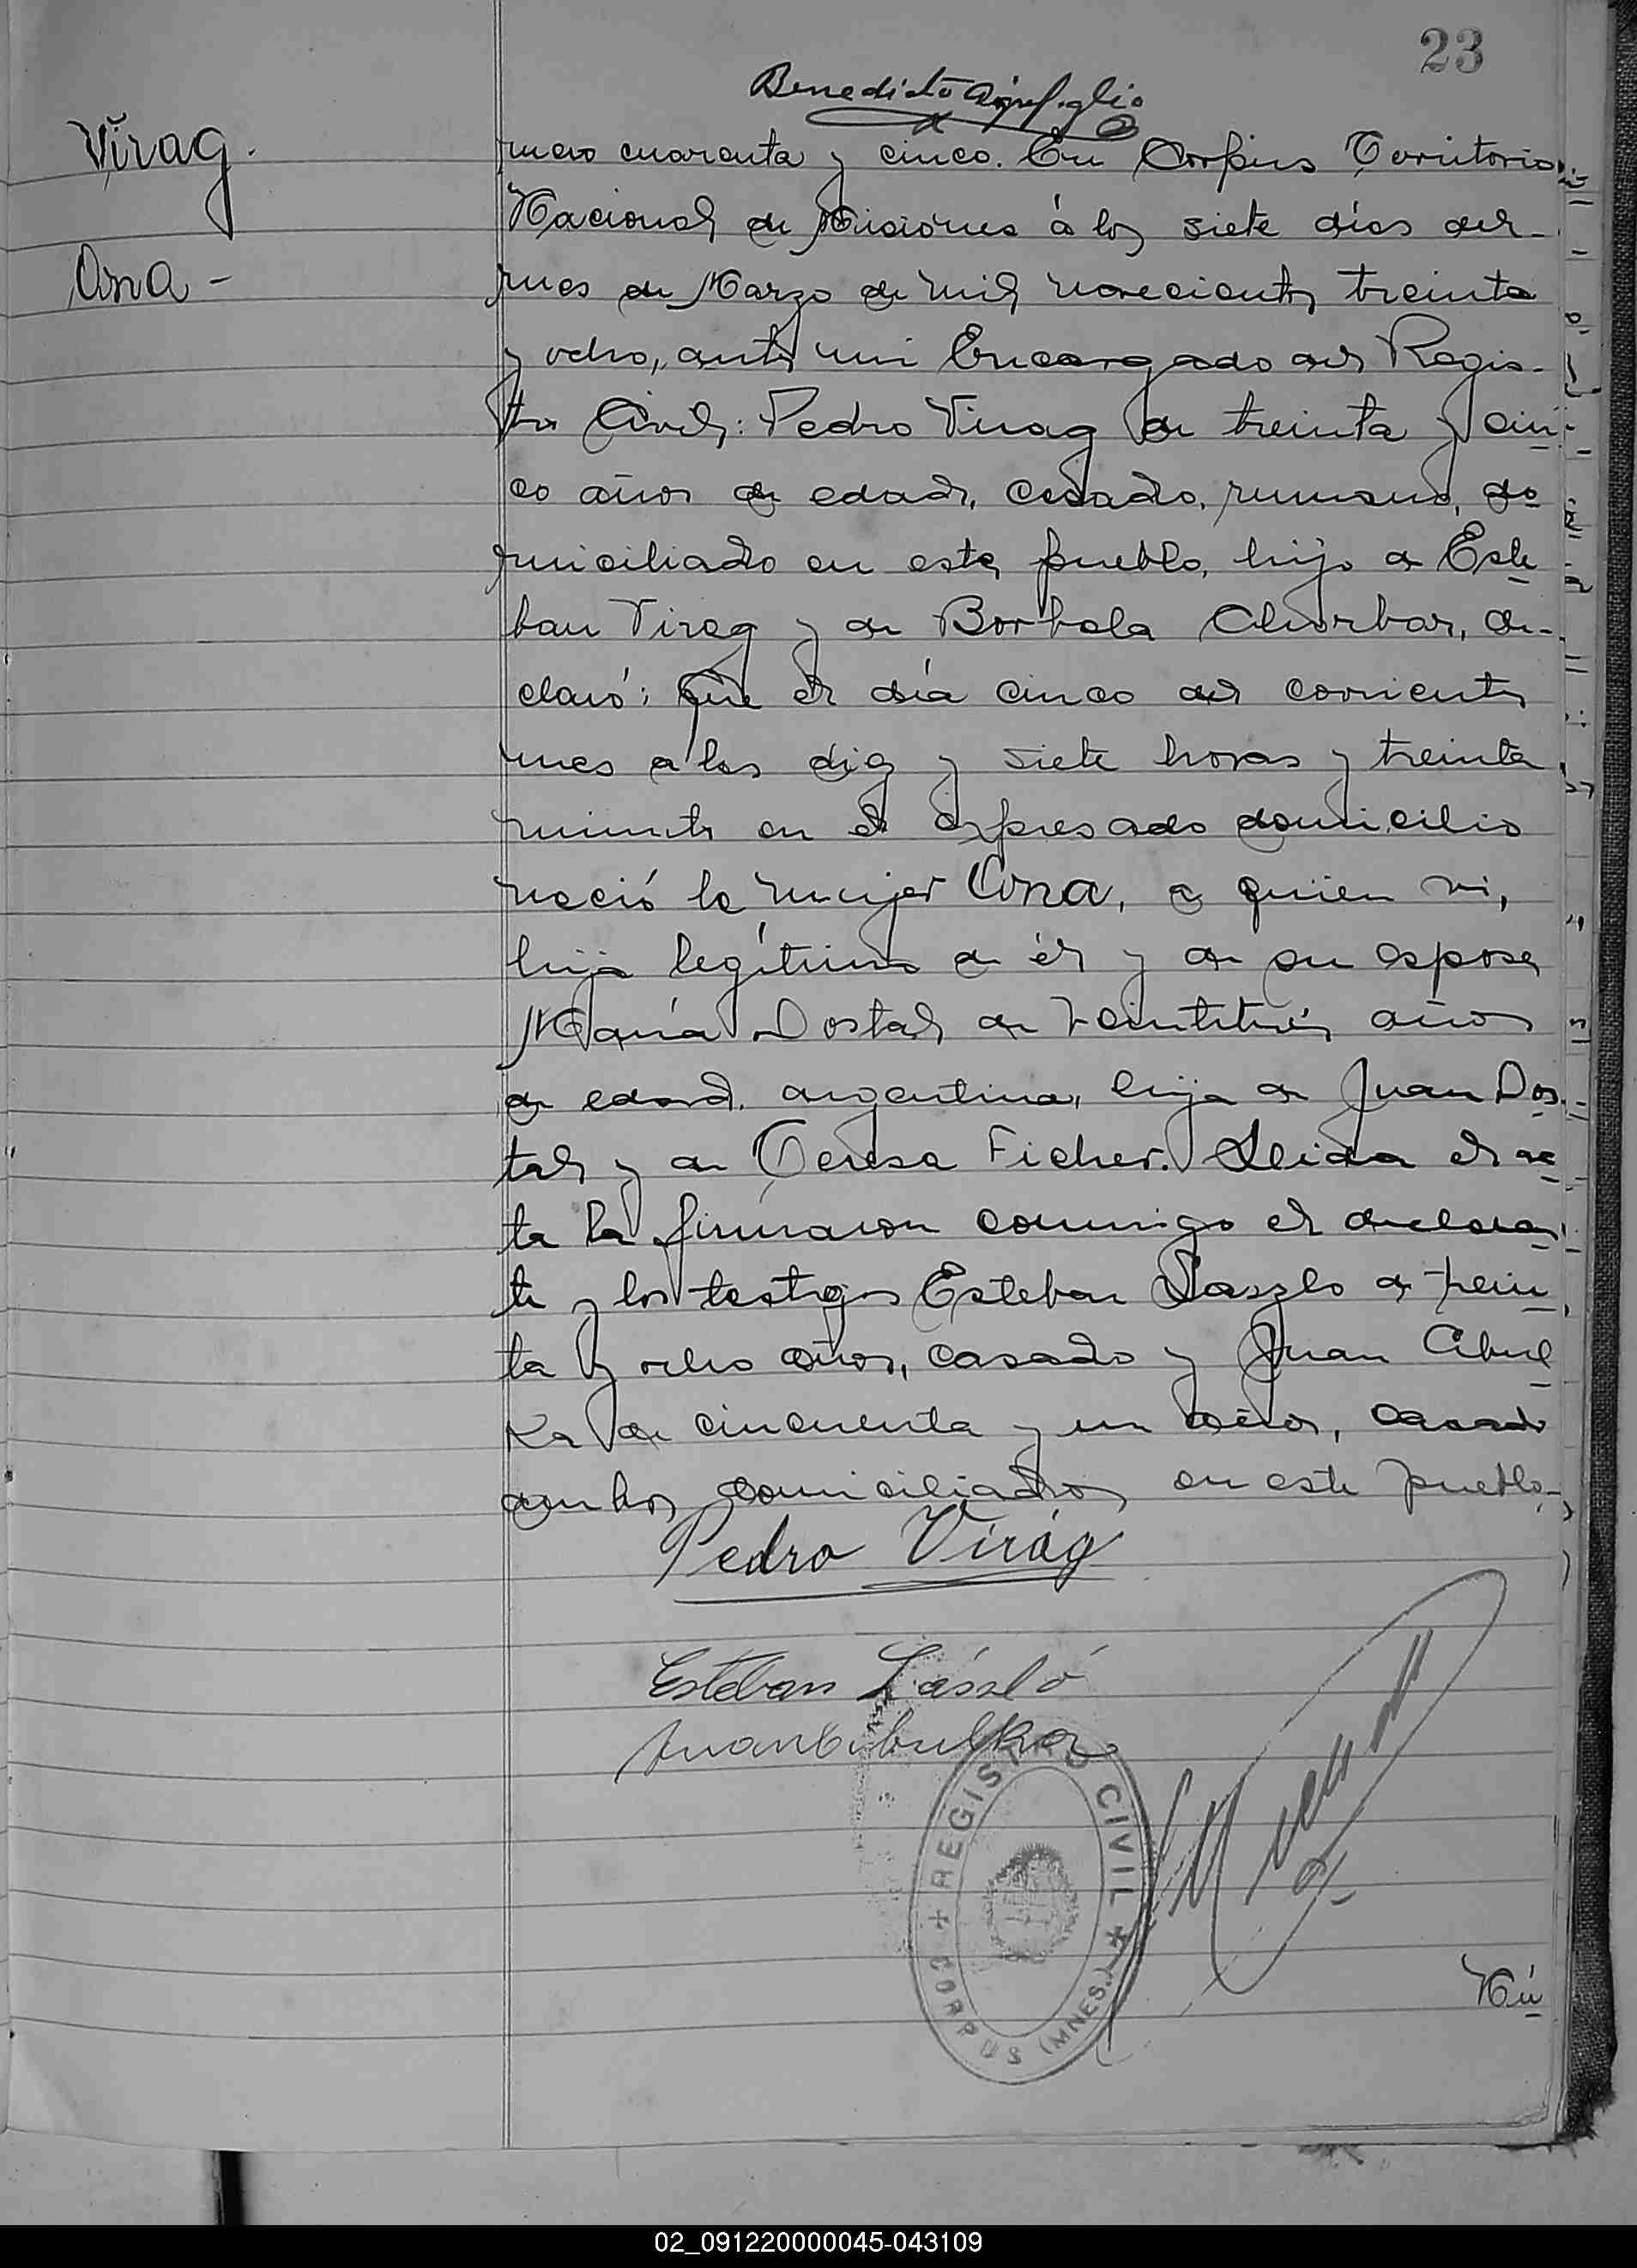 23
Benedicto
Virag.
Ana -
mero cuarenta y cinco. En Corpus Territorio
Nacional de Misiones á los siete días del
mes de Marzo de mil novecientos treinta
y ocho, ante mi Encargado del Regis-
tro Civil: Pedro Virag de treinta y cin
co años de edad, casado, rumano, do
miciliado en este pueblo, hijo de Este
ban Virag y de Borbala Chorbar, de-
claró: Que el día cinco del corriente
mes a las diez y siete horas y treinta
minutos en el expresado domicilio
nació la mujer Ana, a quien vi,
hija legítima de él y de su esposa
María Dostal de veintitrés años
de edad, argentina, hija de Juan Dos
tal y de Teresa Ficher. Leida el ac
ta la firmaron conmigo el declaran
te y los testigos Esteban Laszlo de trein
ta y ocho años, casado y Juan Cibul
ka de cincuenta y un años, casado
ambos domiciliados en este pueblo-
Pedro Virág
Esteban László
Juan Cibulka
REGISTRO CIVIL
CORPUS (MNES.)
Nú
02_091220000045-043109